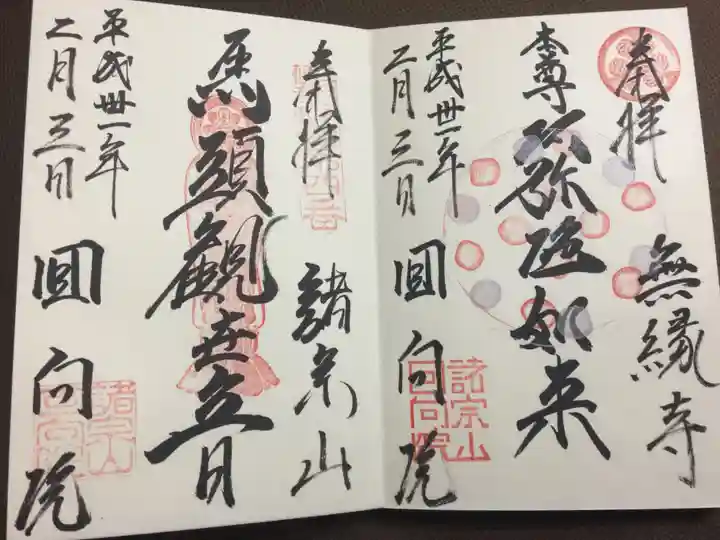 奉拝
無縁寺
本尊 阿弥陀如来
平成卅一年
二月三日
回向院
諸宗山
回向院
奉拝
諸宗山
馬頭観世音
平成卅一年
二月三日
回向院
諸宗山
回向院